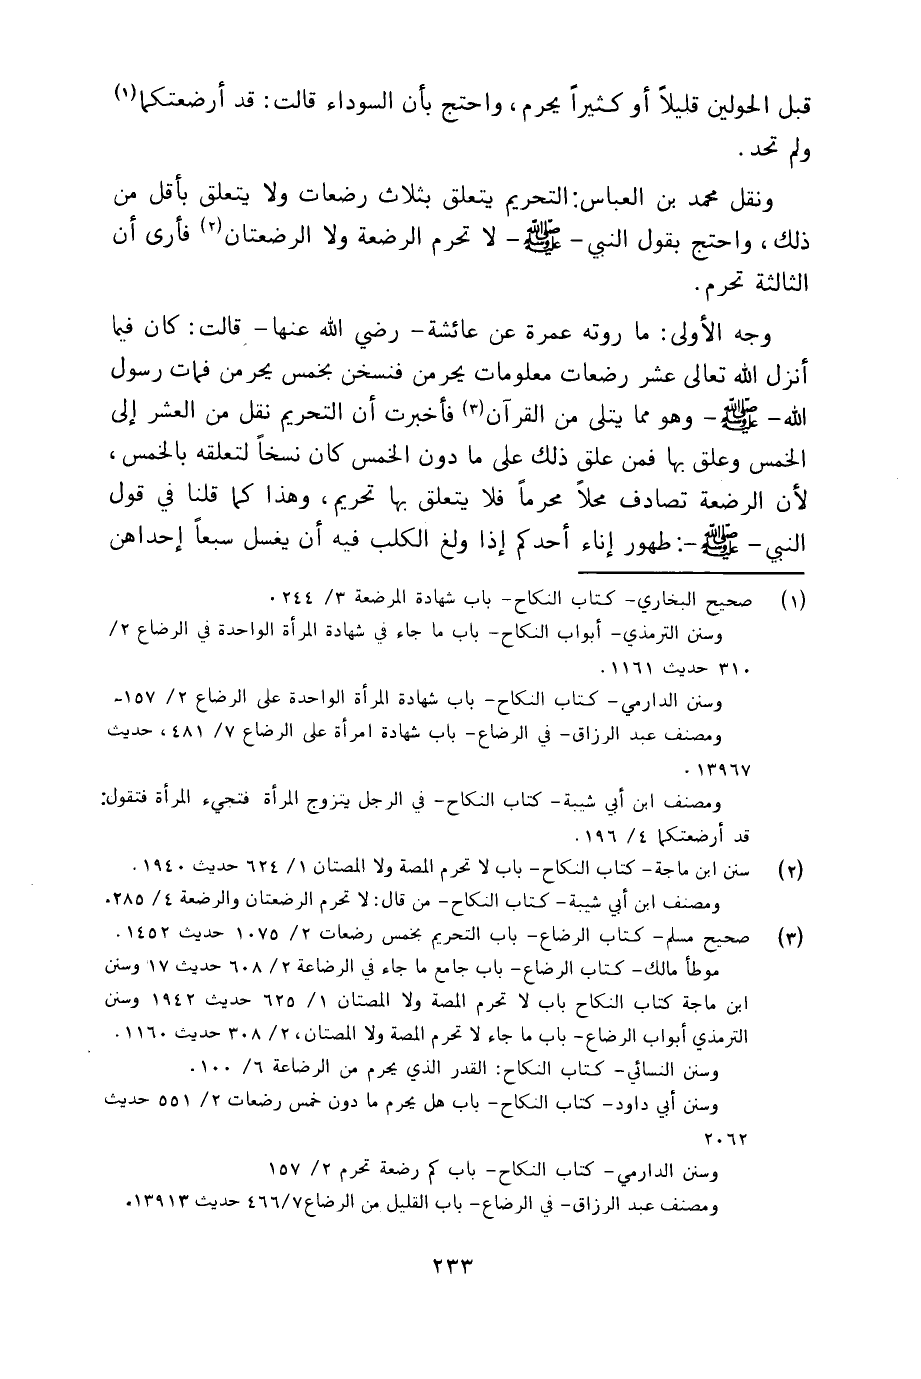 قبل الحولين قليلاً أو كثيراً يحرم، واحتج بأن السوداء قالت: قد أرضعتكما(١)
ولم تحد.
ونقل محمد بن العباس: التحريم يتعلق بثلاث رضعات ولا يتعلق بأقل من
ذلك، واحتج بقول النبي - ﷺ - لا تحرم الرضعة ولا الرضعتان(٢) فأرى أن
الثالثة تحرم.
وجه الأولى: ما روته عمرة عن عائشة - رضي الله عنها - قالت: كان فيما
أنزل الله تعالى عشر رضعات معلومات يحرمن فنسخن بخمس يحرمن فمات رسول
الله - ﷺ - وهو مما يتلى من القرآن(٣) فأخبرت أن التحريم نقل من العشر إلى
الخمس وعلق بها فمن علق ذلك على ما دون الخمس كان نسخاً لتعلقه بالخمس،
لأن الرضعة تصادف محلاً محرماً فلا يتعلق بها تحريم، وهذا كما قلنا في قول
النبي - ﷺ -: طهور إناء أحدكم إذا ولغ الكلب فيه أن يغسل سبعاً إحداهن
(١) صحيح البخاري - كتاب النكاح - باب شهادة المرضعة ٣/ ٢٤٤.
وسنن الترمذي - أبواب النكاح - باب ما جاء في شهادة المرأة الواحدة في الرضاع ٢/
٣١٠ حديث ١١٦١.
وسنن الدارمي - كتاب النكاح - باب شهادة المرأة الواحدة على الرضاع ٢/ ١٥٧-
ومصنف عبد الرزاق - في الرضاع - باب شهادة امرأة على الرضاع ٧/ ٤٨١، حديث
١٣٩٦٧.
ومصنف ابن أبي شيبة - كتاب النكاح - في الرجل يتزوج المرأة فتجيء المرأة فتقول:
قد أرضعتكما ٤/ ١٩٦.
(٢) سنن ابن ماجة - كتاب النكاح - باب لا تحرم المصة ولا المصتان ١/ ٦٢٤ حديث ١٩٤٠.
ومصنف ابن أبي شيبة - كتاب النكاح - من قال: لا تحرم الرضعتان والرضعة ٤/ ٢٨٥.
(٣) صحيح مسلم - كتاب الرضاع - باب التحريم بخمس رضعات ٢/ ١٠٧٥ حديث ١٤٥٢.
موطأ مالك - كتاب الرضاع - باب جامع ما جاء في الرضاعة ٢/ ٦٠٨ حديث ١٧ وسنن
ابن ماجة كتاب النكاح باب لا تحرم المصة ولا المصتان ١/ ٦٢٥ حديث ١٩٤٢ وسنن
الترمذي أبواب الرضاع - باب ما جاء لا تحرم المصة ولا المصتان، ٢/ ٣٠٨ حديث ١١٦٠.
وسنن النسائي - كتاب النكاح: القدر الذي يحرم من الرضاعة ٦/ ١٠٠.
وسنن أبي داود - كتاب النكاح - باب هل يحرم ما دون خمس رضعات ٢/ ٥٥١ حديث
٢٠٦٢
وسنن الدارمي - كتاب النكاح - باب كم رضعة تحرم ٢/ ١٥٧
ومصنف عبد الرزاق - في الرضاع - باب القليل من الرضاع ٤٦٦/٧ حديث ١٣٩١٣.
٢٣٣